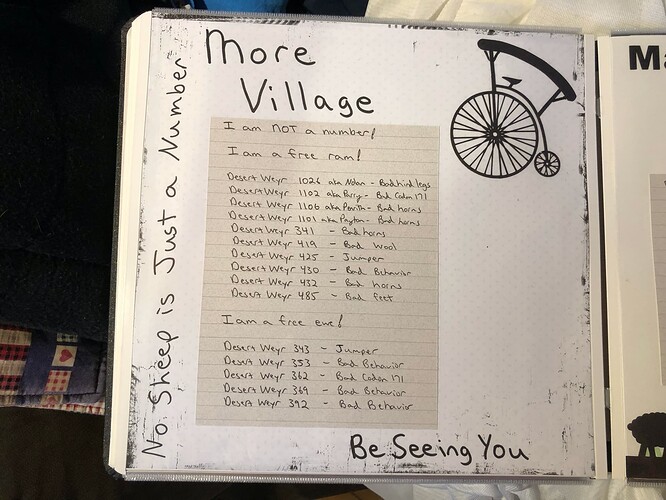 More
Village
No Sheep is Just a Number
I am NOT a number!
I am a free ram!
Desert Weyr 1026 aka Nolan - Bad hind legs
Desert Weyr 1102 aka Perry - Bad Codon 171
Desert Weyr 1106 aka Penrith - Bad horns
Desert Weyr 1101 aka Payton - Bad horns
Desert Weyr 341 - Bad horns
Desert Weyr 419 - Bad Wool
Desert Weyr 425 - Jumper
Desert Weyr 430 - Bad Behavior
Desert Weyr 432 - Bad horns
Desert Weyr 485 - Bad feet
I am a free ewe!
Desert Weyr 343 - Jumper
Desert Weyr 353 - Bad Behavior
Desert Weyr 362 - Bad Codon 171
Desert Weyr 369 - Bad Behavior
Desert Weyr 392 - Bad Behavior
Be Seeing You
Ma